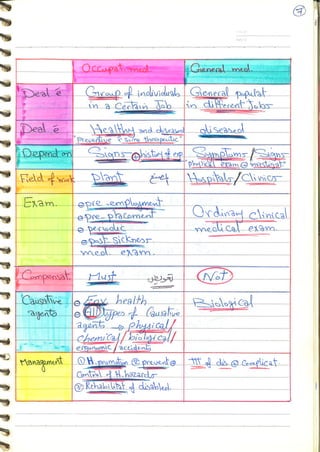 7
Occupat. med. General med.
Deal ē Group of individuals General populat.
in a Certain Job in different Jobs
Deal ē Healthy and diseased diseased
Preventive & some therapeutic
Depend on Signs history of Symptoms / Signs
Physical exam
Field of work Plant Hospitals / Clinics
Exam. pre-employment
pre-placement Ordinary clinical
periodic medical exam.
post sickness
med. exam.
Compensat. Must Not
Causative Env. health Biological
agents All types of Causative
agents → physical /
chemical / biological /
ergonomic / accidents
Management ① H. promotion prevent ttt of dis Complicat.
Control of H. hazards
③ Rehabilitat. of disabled.